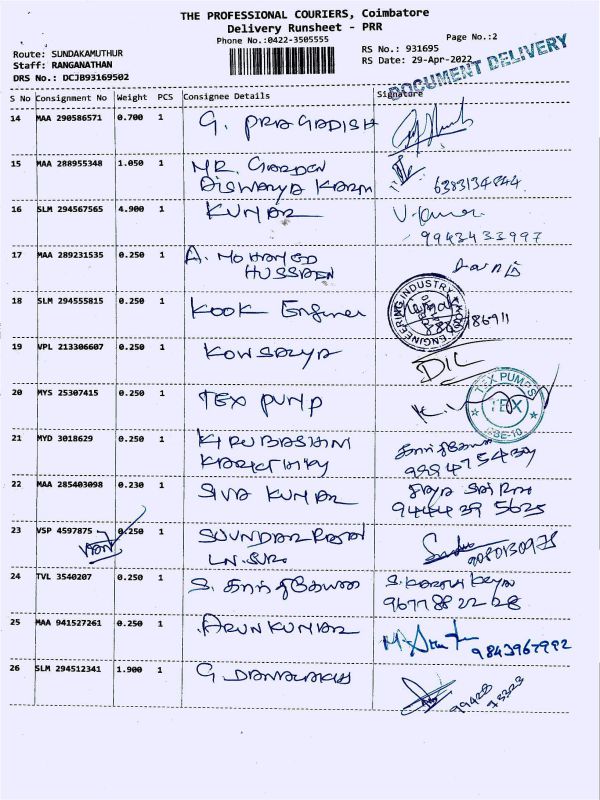 THE PROFESSIONAL COURIERS, Coimbatore
Delivery Runsheet - PRR
Phone No.:0422-3505555
Page No.:2
Route: SUNDAKAMUTHUR
Staff: RANGANATHAN
DRS No.: DCJB93169502
RS No.: 931695
RS Date: 29-Apr-2022
DOCUMENT DELIVERY
S No Consignment No Weight PCS Consignee Details Signature
14 MAA 290586571 0.700 1 G. PRAGADISH
15 MAA 288955348 1.050 1 MR. GARDEN
AISWARYA
16 SLM 294567565 4.900 1 KUMAR V. Kumar
9943433997
17 MAA 289231535 0.250 1 A. MOHAMED
HUSSAEN
18 SLM 294555815 0.250 1 KOOK Engineer
ENGINEERING INDUSTRY
19 VPL 213306607 0.250 1 KOWSALYA
20 MYS 25307415 0.250 1 TEX PUMP
TEX PUMPS
TEX
21 MYD 3018629 0.250 1 KIRUBASHINI
22 MAA 285403098 0.230 1 SIVA KUMAR
9444395625
23 VSP 4597875 0.250 1 SOUNDAR RAJAN
9080130975
24 TVL 3540207 0.250 1 S. கார்த்திகேயன்
9677882228
25 MAA 941527261 0.250 1 ARUNKUMAR
9843967992
26 SLM 294512341 1.900 1 G
99428
73323